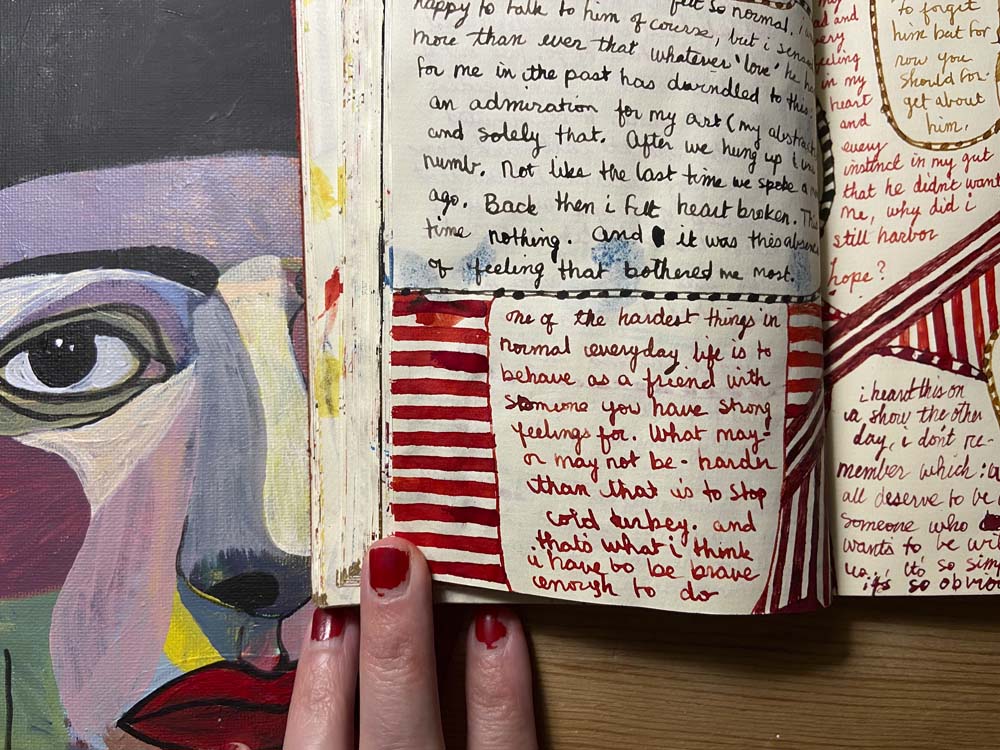 felt so normal. i
happy to talk to him of course, but i
more than ever that whatever 'love' he
for me in the past has dwindled to this:
an admiration for my art (my abstract
and solely that. After we hung up i
numb. Not like the last time we spoke a
ago. Back then i felt heart broken. This
time nothing. and it was this absence
of feeling that bothered me most.
one of the hardest things in
normal everyday life is to
behave as a friend with
someone you have strong
feelings for. What may-
or may not be - harder
than that is to stop
cold turkey. and
that's what i think
i have to be brave
enough to do
and
every
feeling
in my
heart
and
every
instinct in my gut
that he didn't want
me, why did i
still harbor
hope?
to forget
him but for
now you
should for-
get about
him.
i heard this on
a show the other
day, i don't re-
member which:
all deserve to be
someone who
wants to be
us., its so
it's so